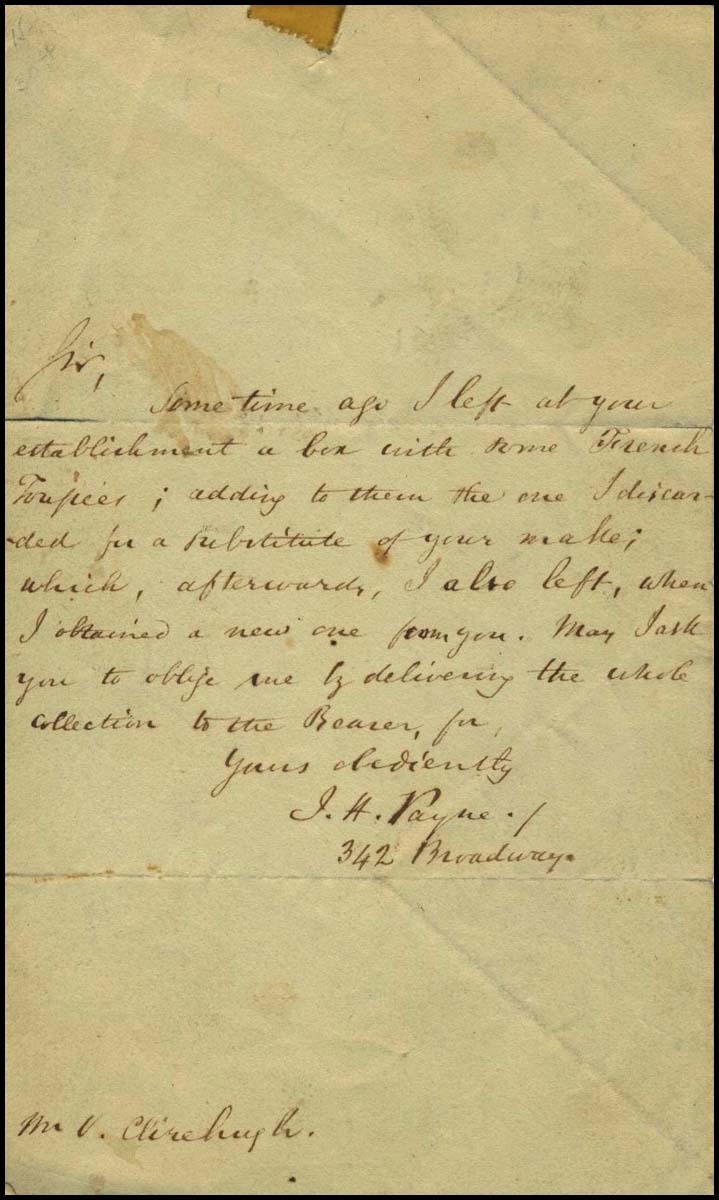 Sir,
Some time ago I left at your
establishment a box with some French
Toupées ; adding to them the one I discar-
-ded for a substitute of your make;
which, afterwards, I also left, when
I obtained a new one from you. May I ask
you to oblige me by delivering the whole
collection to the Bearer, for,
Yours obediently
J. H. Payne.
342 Broadway.
Mr V. Clirehugh.